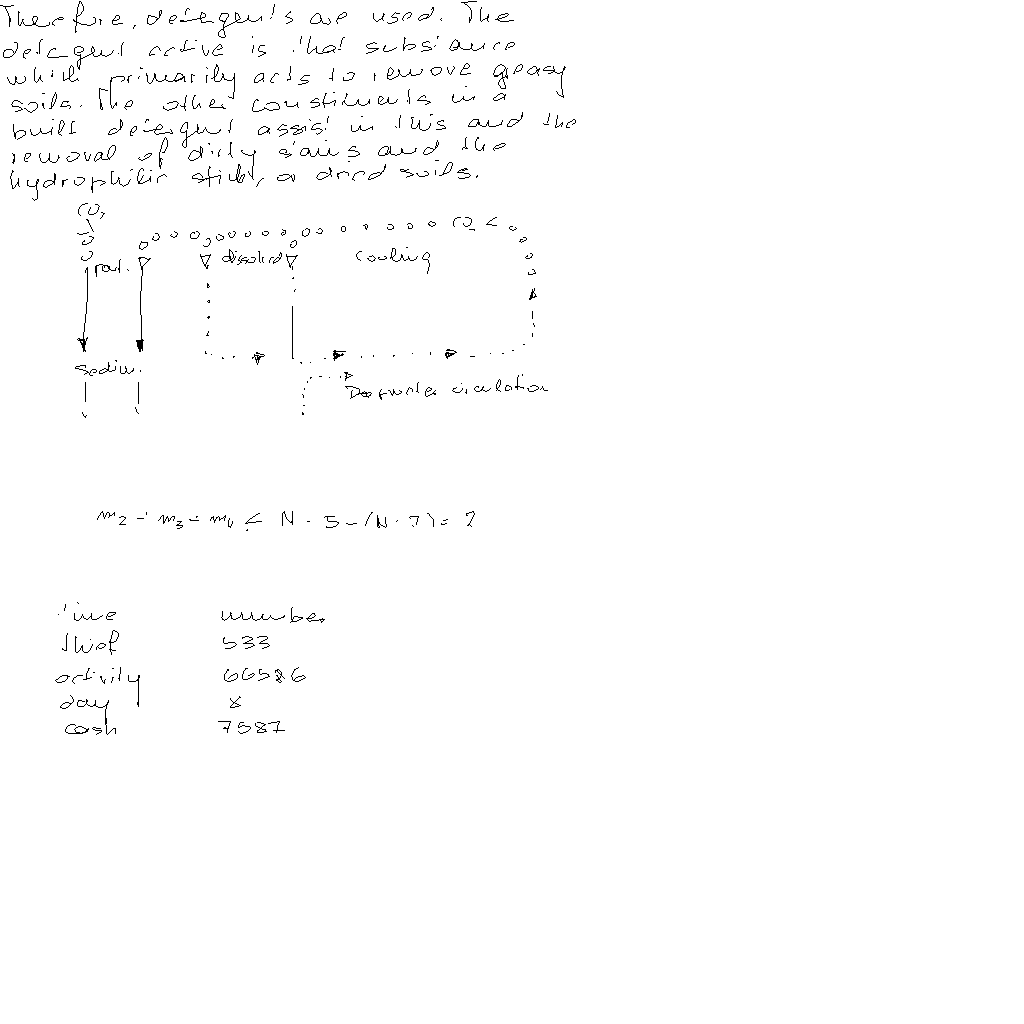 Therefore, detergents are used. The
detergent active is that substance
which primarily acts to remove greasy
soils. The other constituents in a
built detergent assist in this and the
removal of dirty stains and the
hydrophilic sticky or dried soils.
CO₂
CO₂ <
part. dissolved cooling
sedim.
Deepwater circulation
m₂ - m₃ - m₄ ≤ N · 5 - (N · 7) = ?
time number
533
activity
day 8
cash 7587